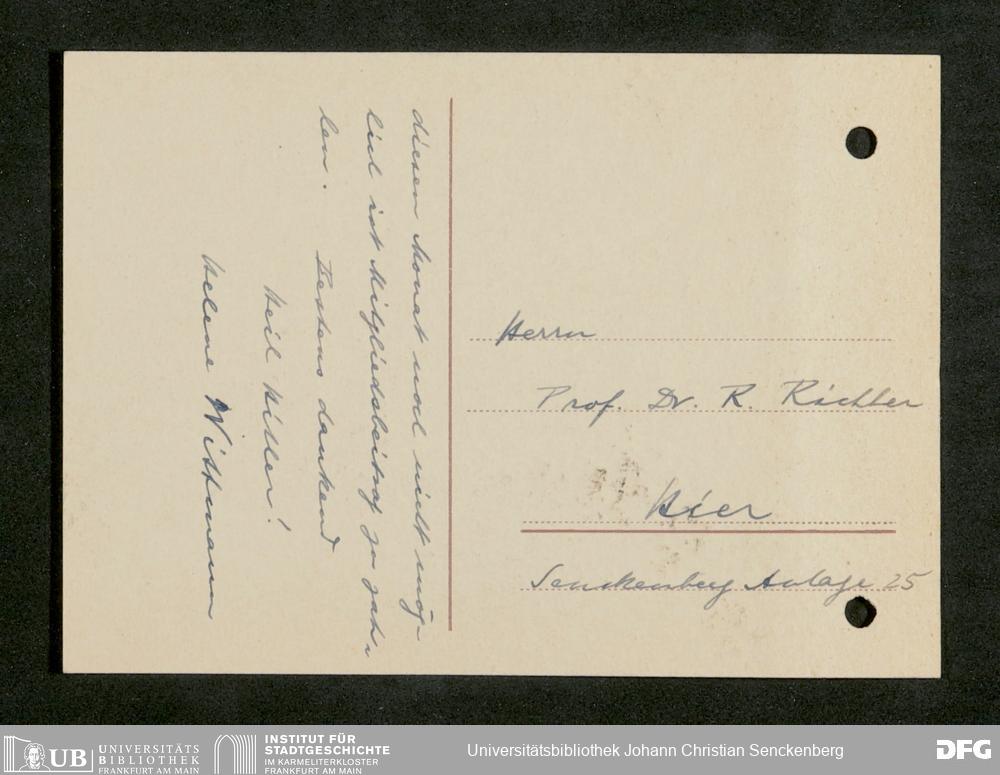 diesen Monat noch nicht mög-
lich ist Mitgliedsbeitrag zu zah-
len. Bestens dankend
Heil Hitler!
Helene Wittmann
Herrn
Prof. Dr. R. Richter
Hier
Senckenberg Anlage 25
UB
UNIVERSITÄTS
BIBLIOTHEK
FRANKFURT AM MAIN
INSTITUT FÜR
STADTGESCHICHTE
IM KARMELITERKLOSTER
FRANKFURT AM MAIN
Universitätsbibliothek Johann Christian Senckenberg
DFG